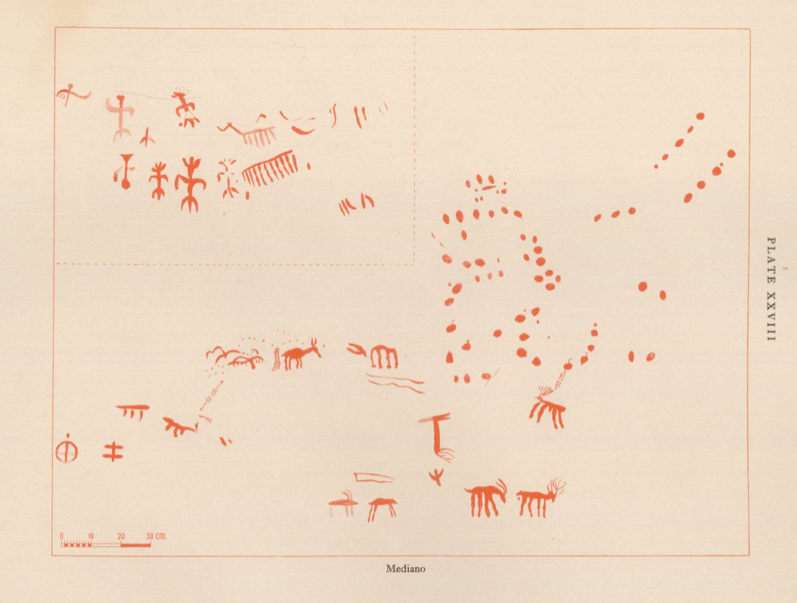 PLATE XXVIII
0 10 20 30 CM.
Mediano